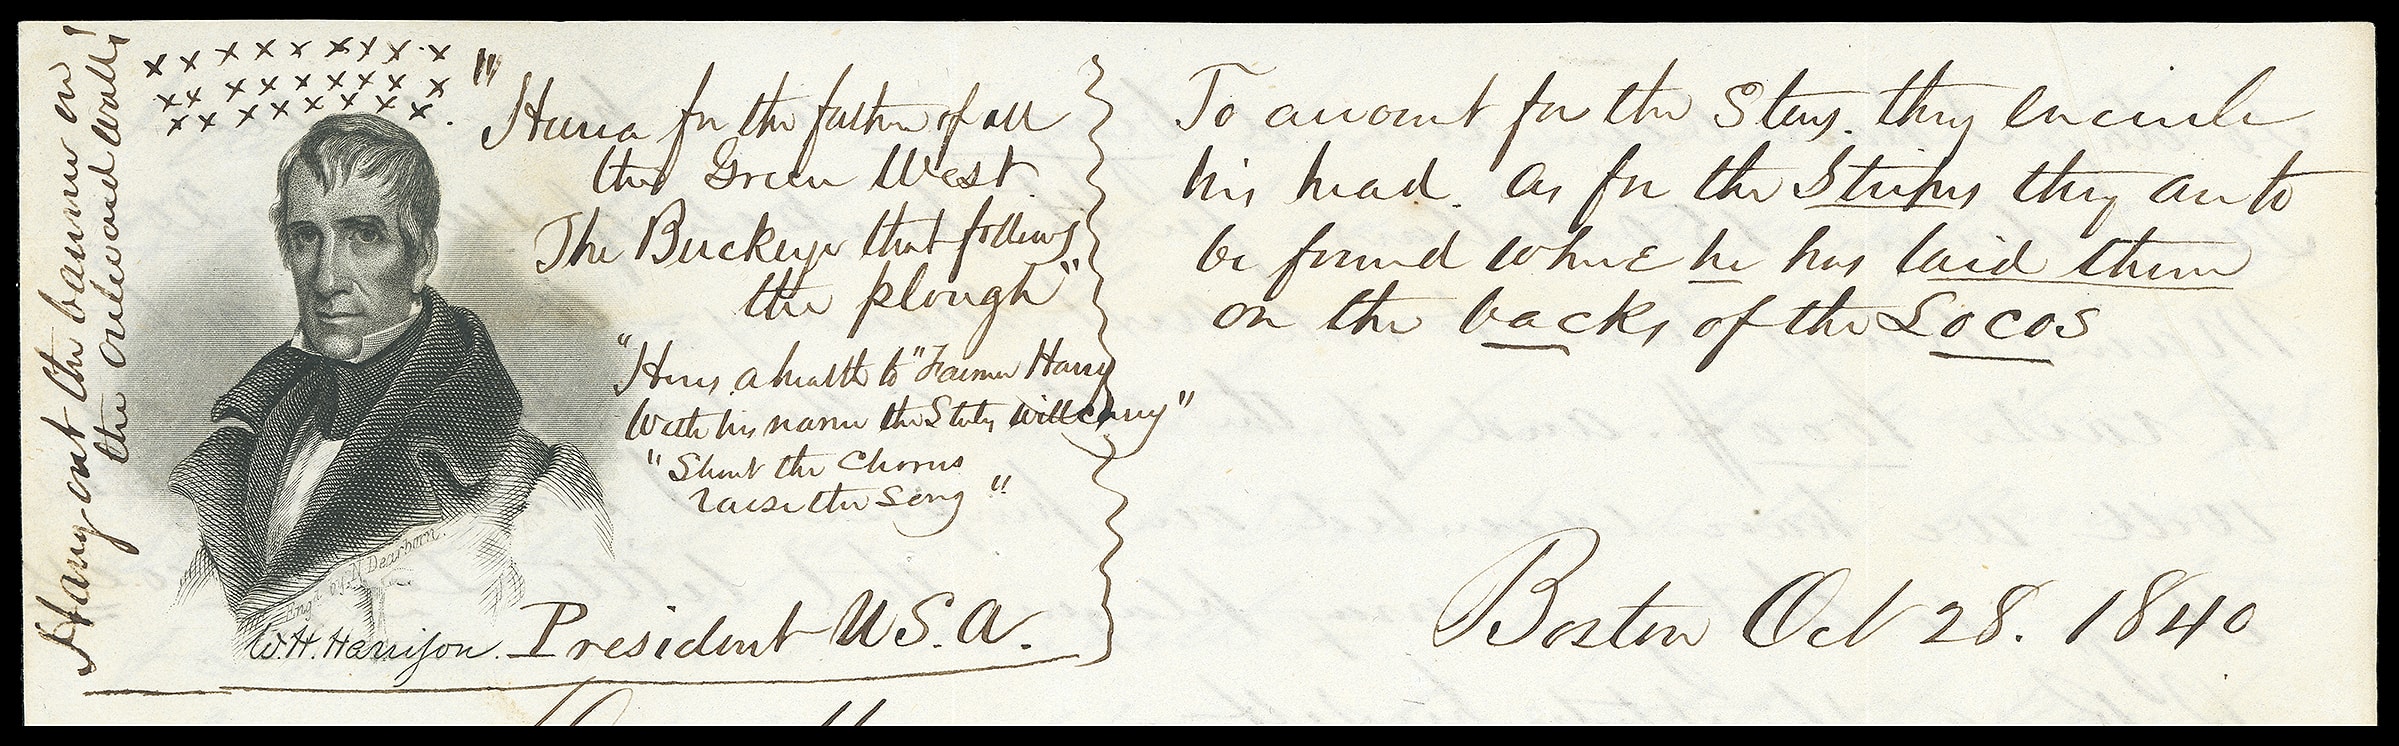 Hang out the banner on
the outward walls!
"Hurra for the father of all
the Green West.
The Buckeye that follows
the plough"
"Heres a health to "Farmer Harry
With his name the States will carry"
"Shout the Chorus
raise the Song"
Engd. by N Dearborn.
W.H. Harrison. President U.S.A.
To amount for the Stars. they encircle
his head. as for the Stripes they are to
be found where he has laid them
on the backs of the Locos
Boston Oct 28. 1840